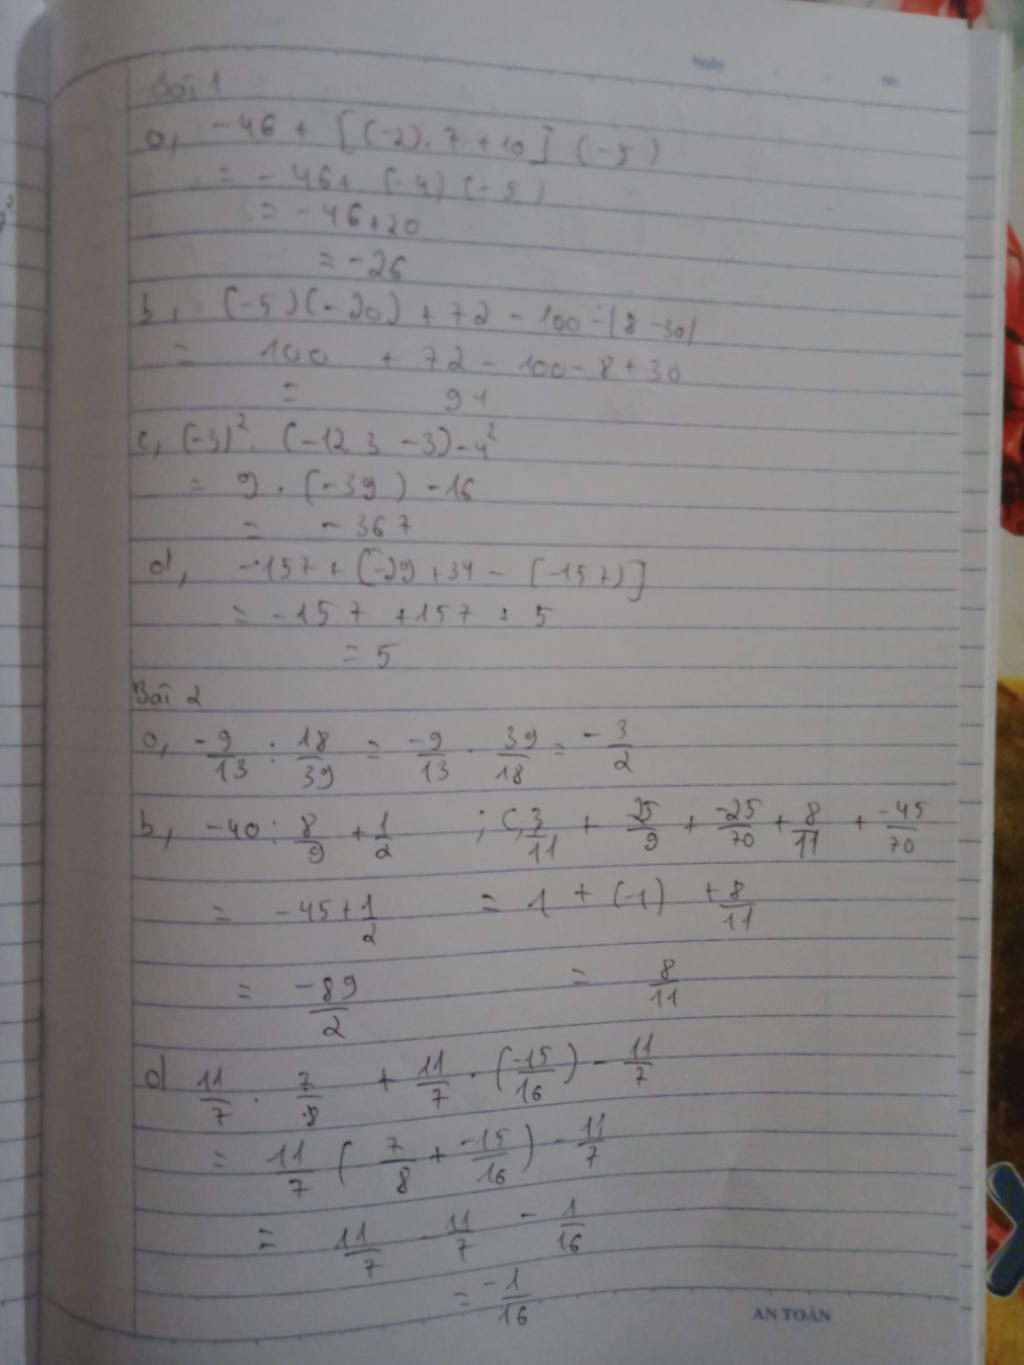 Ngày No.
Bài 1
a, -46 + [(-2).7+10] (-5)
= -46+ (-4) (-5)
= -46+20
= -26
b, (-5)(-20) + 72 - 100 - |8-30|
= 100 + 72 - 100 - 8 + 30
= 94
c, (-3)². (-12 3 -3) - 4²
= 9 . (-39) - 16
= -367
d, -157 + [-29 +34 - (-157)]
= -157 +157 + 5
= 5
Bài 2
a, -9/13 : 18/39 = -9/13 . 39/18 = -3/2
b, -40 : 8/9 + 1/2 ; c, 3/11 + 25/9 + -25/70 + 8/11 + -45/70
= -45 + 1/2 = 1 + (-1) + 8/11
= -89/2 = 8/11
d 11/7 . 7/8 + 11/7 . (-15/16) - 11/7
= 11/7 ( 7/8 + -15/16 ) - 11/7
= 11/7 - 11/7 - 1/16
= -1/16
AN TOÀN